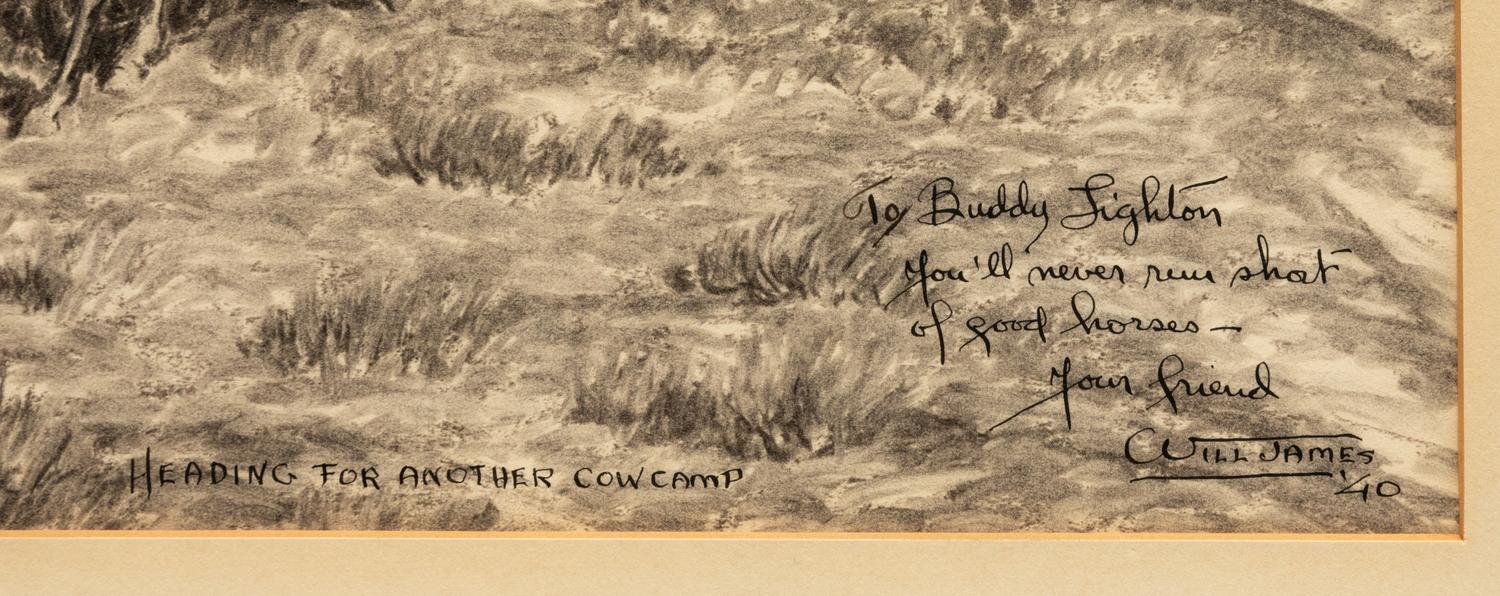 To Buddy Lighton
You'll never run short
of good horses —
Your friend
WILL JAMES
'40
HEADING FOR ANOTHER COWCAMP